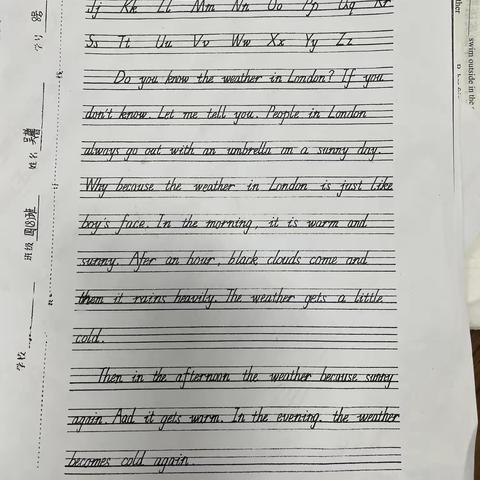 Jj Kk Ll Mm Nn Oo Pp Qq Rr
Ss Tt Uu Vv Ww Xx Yy Zz
Do you know the weather in London? If you
don't know. Let me tell you. People in London
always go out with an umbrella on a sunny day.
Why because the weather in London is just like
boy's face. In the morning, it is warm and
sunny. Afer an hour, black clouds come and
then it rains heavily. The weather gets a little
cold.
Then in the afternoon the weather because sunny
again. And it gets warm. In the evening, the weather
becomes cold again.
学校
班级 四(8)班
姓名
学号
swim outside in the